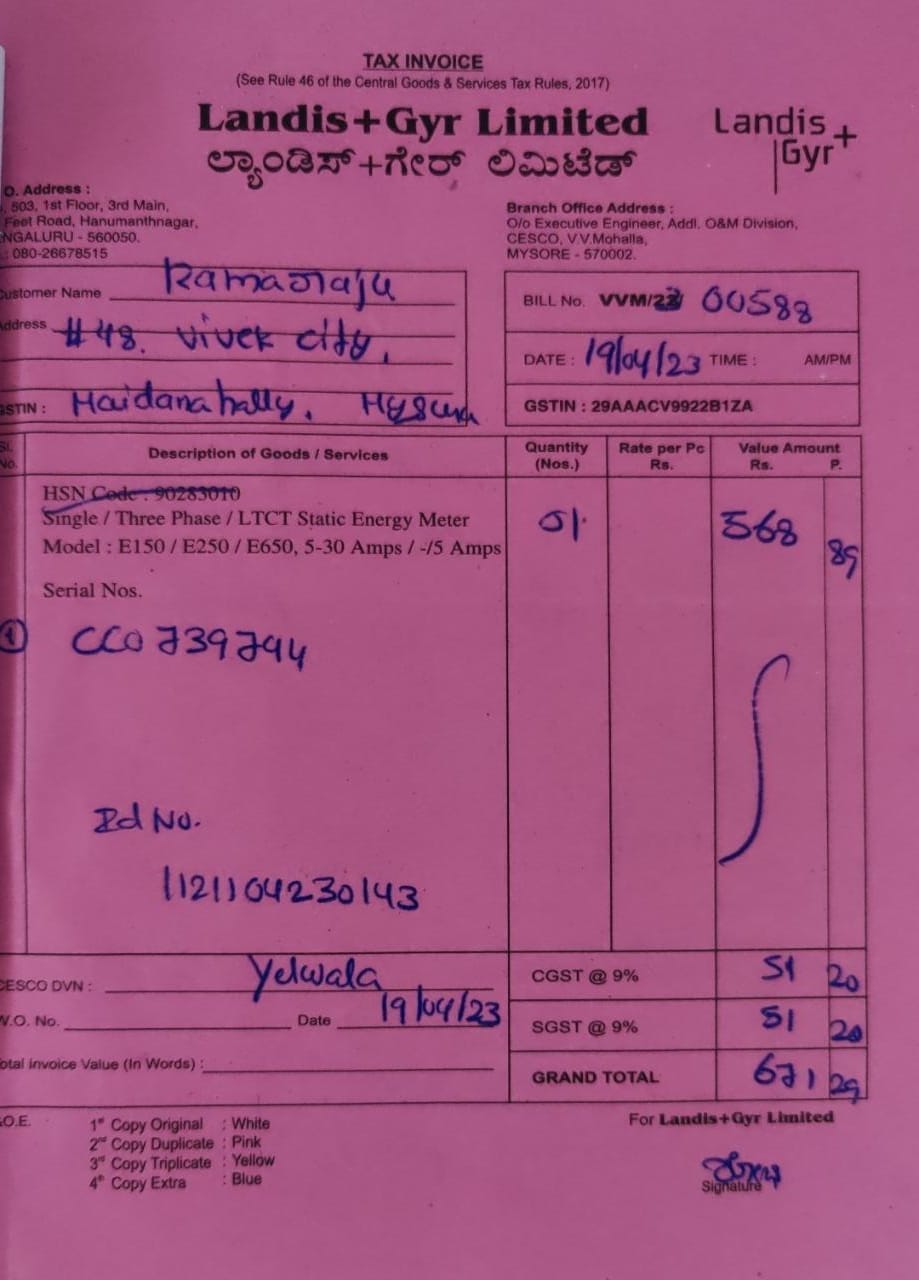 TAX INVOICE
(See Rule 46 of the Central Goods & Services Tax Rules, 2017)
Landis+Gyr Limited
ಲ್ಯಾಂಡಿಸ್+ಗೇರ್ ಲಿಮಿಟೆಡ್
Landis
Gyr+
O. Address :
, 503, 1st Floor, 3rd Main,
Feet Road, Hanumanthnagar,
NGALURU - 560050.
: 080-26678515
Branch Office Address :
O/o Executive Engineer, Addl. O&M Division,
CESCO, V.V.Mohalla,
MYSORE - 570002.
Customer Name Ramaraju
Address #48. Vivek city,
GSTIN : Maidanahally. Mysuru
BILL No. VVM/23 00588
DATE : 19/04/23 TIME : AM/PM
GSTIN : 29AAACV9922B1ZA
Sl. No. Description of Goods / Services Quantity (Nos.) Rate per Pc Rs. Value Amount Rs. P.
HSN Code : 90283010
Single / Three Phase / LTCT Static Energy Meter 01 568 89
Model : E150 / E250 / E650, 5-30 Amps / -/5 Amps
Serial Nos.
1 CC0739794
Id No.
1121104230143
CESCO DVN : Yelwala
W.O. No. Date 19/04/23
Total Invoice Value (In Words) :
CGST @ 9% 51 20
SGST @ 9% 51 20
GRAND TOTAL 671 29
.O.E.
1st Copy Original : White
2nd Copy Duplicate : Pink
3rd Copy Triplicate : Yellow
4th Copy Extra : Blue
For Landis+Gyr Limited
Signature